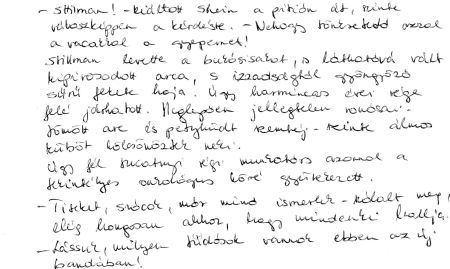 - Stillman! - kiáltott Shein a pición át, szinte
válaszképpen a kérdésre. - Nehogy tönkretedd azzal
a vacakkal a gyepemet!
Stillman levette a bukósisakot, s láthatóvá vált
kipirosodott arca, s izzadságtól gyöngyöző
sűrű fekete haja. Úgy harmincas évei vége
felé járhatott. Meglepően jellegtelen vonásai -
tömött arc és petyhüdt szemhéj - szinte álmos
külsőt kölcsönöztek neki.
Úgy fél tucatnyi régi munkatárs azonnal a
tekintélyes oarológus köré gyülekezett.
- Titeket, srácok, már mind ismerlek - szólalt meg,
elég hangosan ahhoz, hogy mindenki hallja.
- Lássuk, milyen húsok vannak ebben az új
bandában!